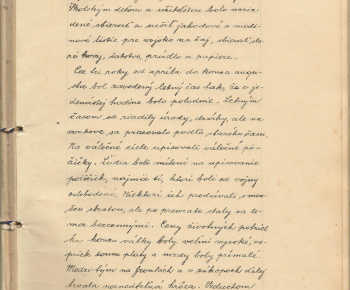 Školským deťom a učiteľstvu bolo naria-
dené sbierať a sušiť jahodové a mali-
nové lístie pre vojsko na čaj, sbierať sta-
ré kovy, šatstvo, prádlo a papiere.
Cez tri roky od apríla do konca augu-
sta bol zavedený letný čas tak, že o je-
denástej hodine bolo poludnie. Letným
časom se riadily úrady, dráhy, ale na
vonkove sa pracovalo podľa starého času.
Na válečné ciele upisovali válečné pô-
žičky. Ľudia boli nútení na upisovanie
pôžičiek, najmä tí, ktorí boli od vojny
oslobodení. Niektorí ich predávali s
stratou, ale po prevrate staly sa te-
mer bezcennými. Ceny životných potrieb
ku koncu války boly veľmi vysoké, na-
opak platy a mzdy boly primalé.
Medzitým na frontách a v zákopoch ďalej
trvala hrôza.